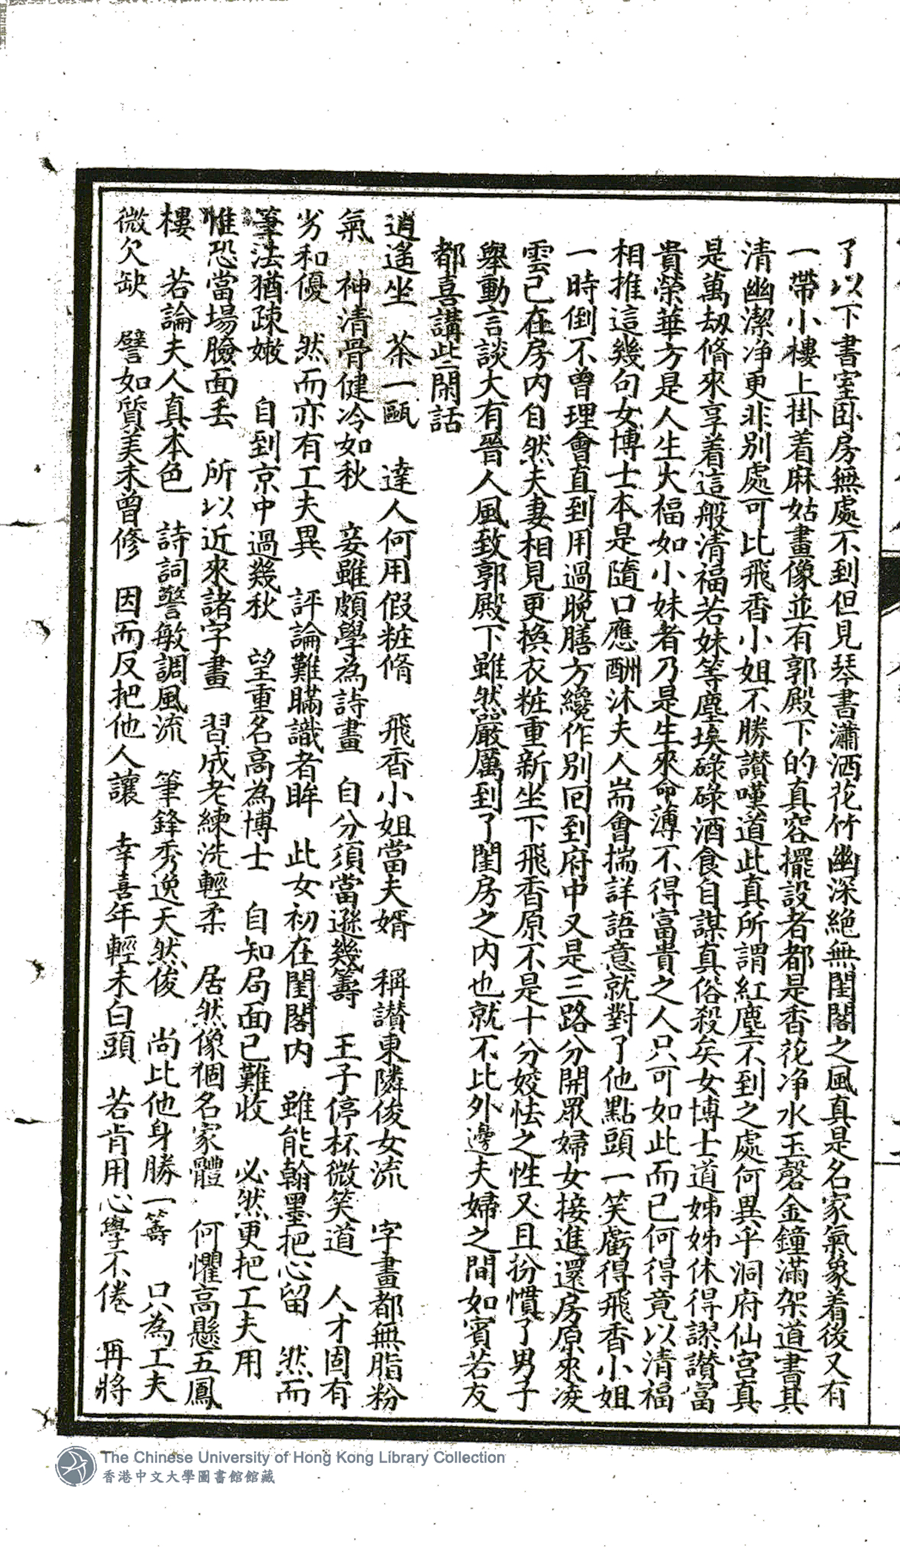 了以下書室卧房無處不到但見琴書瀟洒花竹幽深絕無閨閣之風真是名家氣象着後又有
一帶小樓上掛着麻姑畫像並有郭殿下的真容擺設者都是香花净水玉磬金鐘滿架道書其
清幽潔净更非別處可比飛香小姐不勝讃嘆道此真所謂紅塵不到之處何異乎洞府仙宮真
是萬劫脩來享着這般清福若妹等塵埃碌碌酒食自謀真俗殺矣女博士道姊姊休得謬讃富
貴榮華方是人生大福如小妹者乃是生來命薄不得富貴之人只可如此而已何得竟以清福
相推這幾句女博士本是隨口應酬沐夫人耑會揣詳語意就對了他點頭一笑虧得飛香小姐
一時倒不曾理會直到用過晚膳方纔作別回到府中又是三路分開眾婦女接進還房原來凌
雲已在房內自然夫妻相見更換衣粧重新坐下飛香原不是十分姣怯之性又且扮慣了男子
舉動言談大有晉人風致郭殿下雖然嚴厲到了閨房之內也就不比外邊夫婦之間如賓若友
都喜講些閒話
逍遙坐　茶一甌　達人何用假粧脩　飛香小姐當夫婿　稱讃東隣俊女流　字畫都無脂粉
氣　神清骨健冷如秋　妾雖頗學為詩畫　自分須當遜幾籌　王子停杯微笑道　人才固有
劣和優　然而亦有工夫異　評論難瞞識者眸　此女初在閨閣內　雖能翰墨把心留　然而
筆法猶疎嫩　自到京中過幾秋　望重名高為博士　自知局面已難收　必然更把工夫用
惟恐當場臉面丢　所以近來諸字畫　習成老練洗輕柔　居然像個名家體　何懼高懸五鳳
樓　若論夫人真本色　詩詞警敏調風流　筆鋒秀逸天然俊　尚比他身勝一籌　只為工夫
微欠缺　譬如質美未曾修　因而反把他人讓　幸喜年輕未白頭　若肯用心學不倦　再將
The Chinese University of Hong Kong Library Collection
香港中文大學圖書館館藏